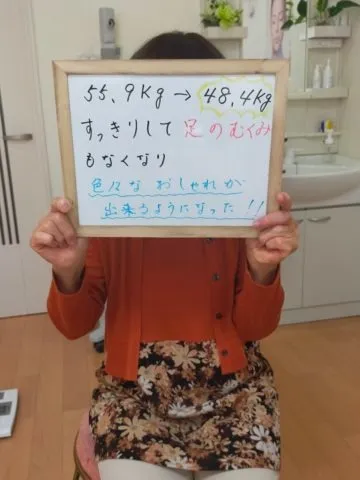 55.9Kg → 48.4kg
すっきりして 足のむくみ
もなくなり
色々なおしゃれが
出来るようになった!!